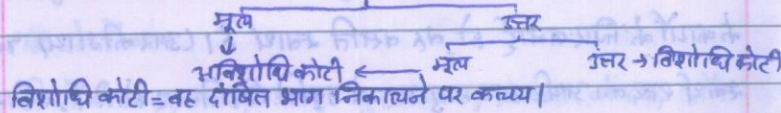 मूल उत्तर
↓
अविशोधि कोटी ← मूल उत्तर → विशोधि कोटी
विशोधि कोटी = वह दोषित भाग निकालने पर कल्प्य।